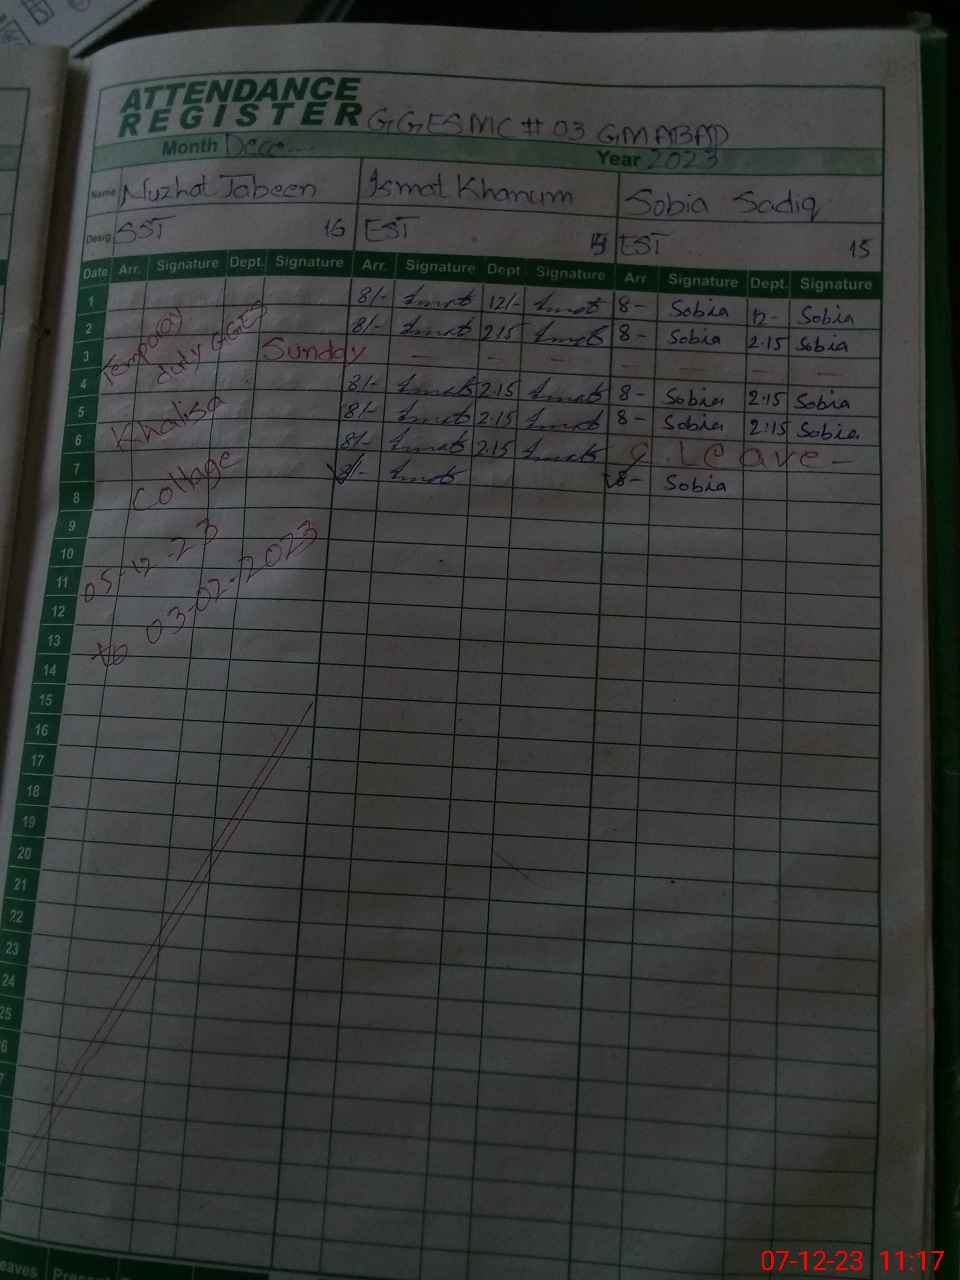 ATTENDANCE
REGISTER GGES MC # 03 GMABAD
Month Dece.... Year 2023
Name Nuzhat Jabeen Ismat Khanum Sobia Sadiq
Desig SST 16 EST EST 15
Date Arr. Signature Dept. Signature Arr. Signature Dept. Signature Arr Signature Dept. Signature
1 8/- Ismat 12/- Ismat 8- Sobia 12- Sobia
2 8/- Ismat 2.15 Ismat 8- Sobia 2.15 Sobia
3 Sunday — — — — — — — —
4 8/- Ismat 2.15 Ismat 8- Sobia 2.15 Sobia
5 8/- Ismat 2.15 Ismat 8- Sobia 2.15 Sobia
6 8/- Ismat 2.15 Ismat C. Leave -
7 8/- Ismat 8- Sobia
8
9
10
11
12
13
14
15
16
17
18
19
20
21
22
23
24
25
6
7
Temporay
duty GGES
Khalisa
Collage
05-12-23
to 03-02-2023
eaves Present
07-12-23 11:17